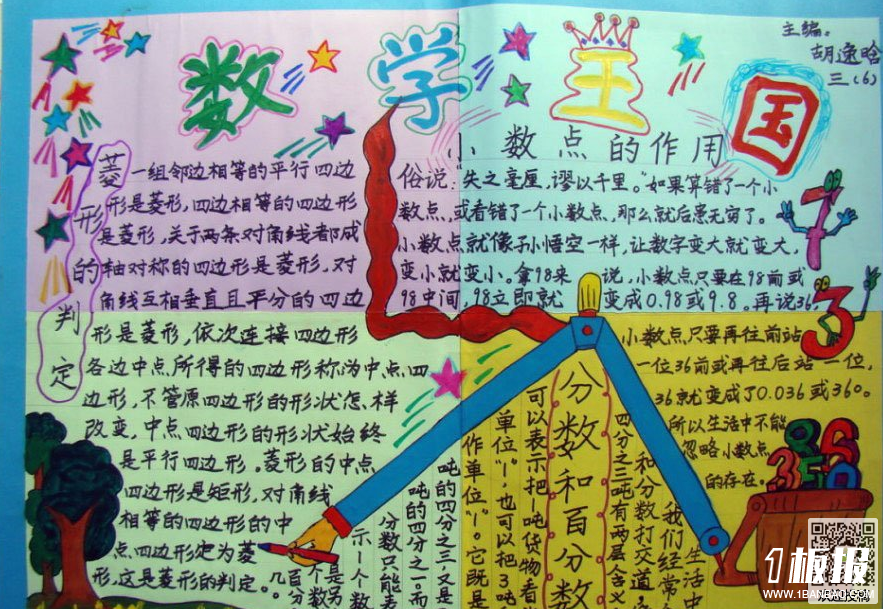 数学王国
主编:
胡逸晗
三(6)
菱形的判定
一组邻边相等的平行四边
形是菱形,四边相等的四边形
是菱形,关于两条对角线都成
轴对称的四边形是菱形,对
角线互相垂直且平分的四边
形是菱形,依次连接四边形
各边中点所得的四边形称为中点四
边形,不管原四边形的形状怎样
改变,中点四边形的形状始终
是平行四边形。菱形的中点
四边形是矩形,对角线
相等的四边形的中
点四边形定为菱
形,这是菱形的判定。
小数点的作用
俗说:“失之毫厘,谬以千里。”如果算错了一个小
数点,或看错了一个小数点,那么就后患无穷了。
小数点就像孙小悟空一样,让数字变大就变大,
变小就变小。拿98来说,小数点只要在98前或
98中间,98立即就变成0.98或9.8。再说36,
小数点只要再往前站
一位36前或再往后站一位,
36就变成了0.036或360。
所以生活中不能
忽略小数点
的存在。
7
3
86
3560
分数和百分数
生活中
我们经常
和分数打交道,
四分之三吨有两层含义
可以表示把1吨货物看
单位“1”也可以把3吨
作单位“1”。它既是
吨的四分之三又是
吨的四分之一。而
分数只能表
示1个数
个是另
百分数
几。
1板报
WWW.1BANBAO.COM